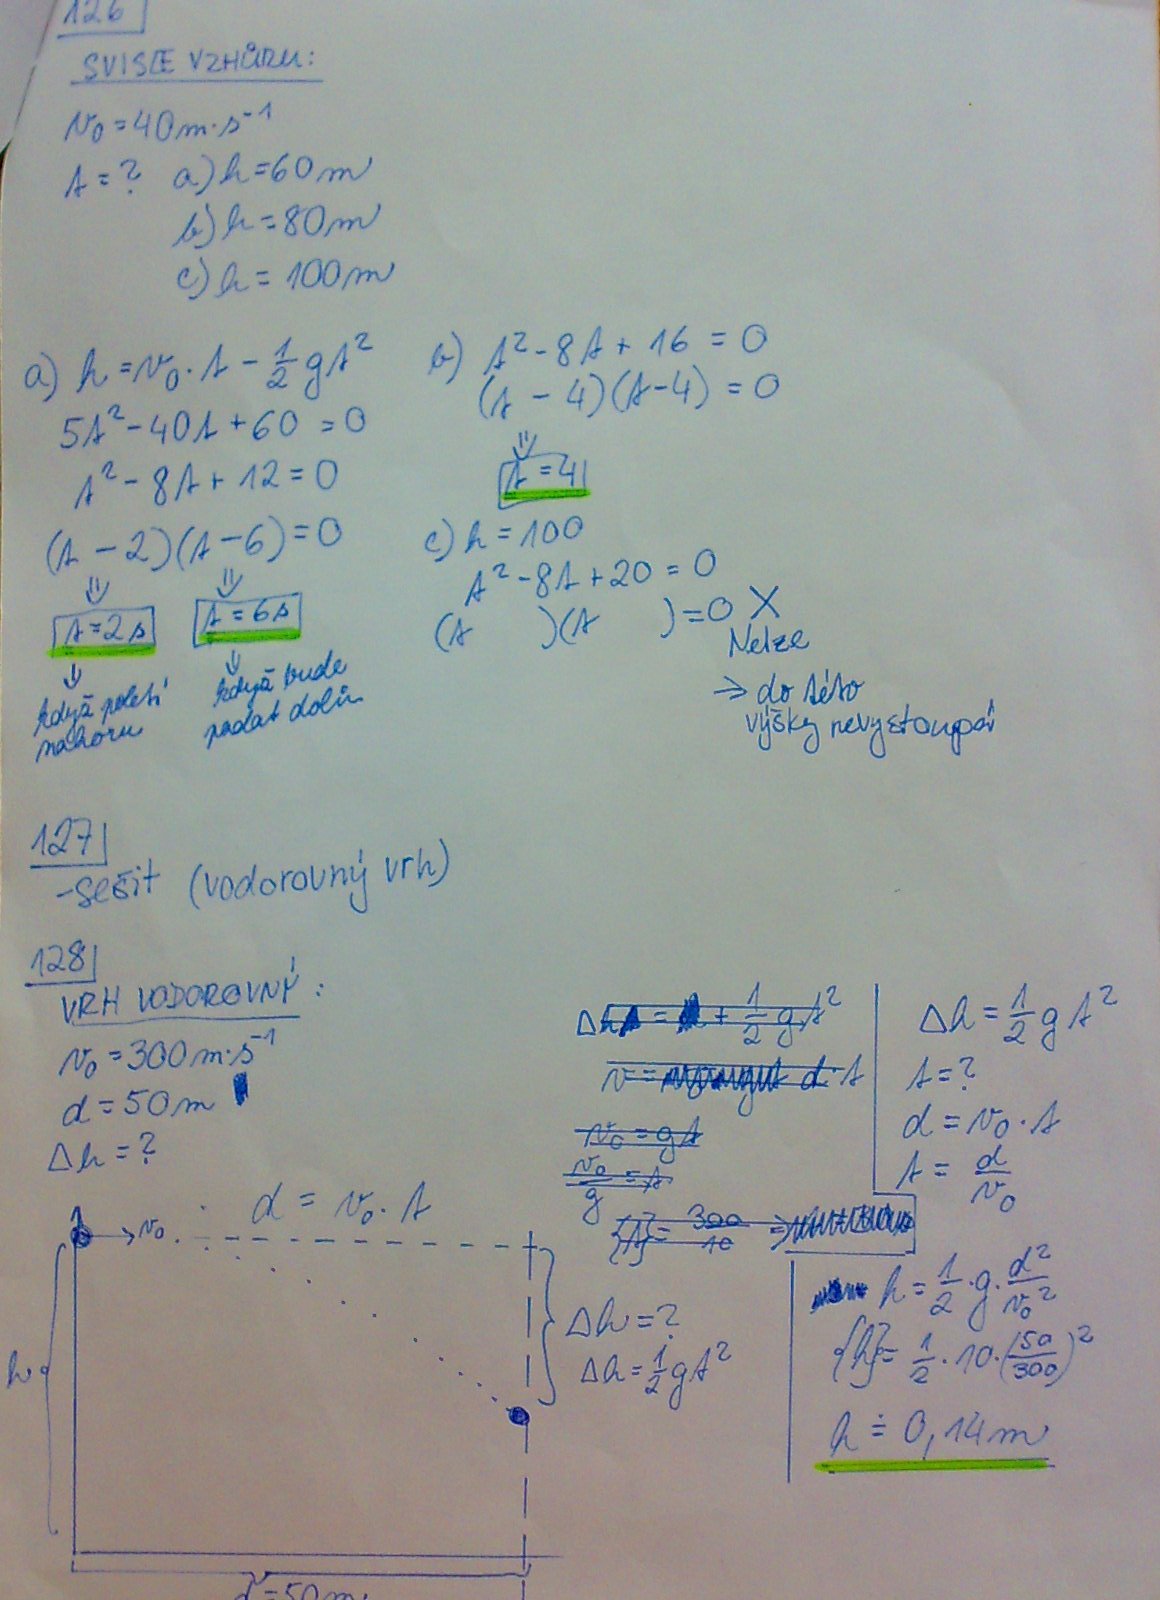 126
SVISLE VZHŮRU:
v₀ = 40 m·s⁻¹
t = ? a) h = 60 m
b) h = 80 m
c) h = 100 m
a) h = v₀·t - 1/2 gt²
5t² - 40t + 60 = 0
t² - 8t + 12 = 0
(t - 2)(t - 6) = 0
⇓ ⇓
t = 2s t = 6s
⇓ ⇓
když poletí
nahoru
když bude
padat dolů
b) t² - 8t + 16 = 0
(t - 4)(t - 4) = 0
⇓
t = 4
c) h = 100
t² - 8t + 20 = 0
(t )(t ) = 0 X
Nelze
→ do této
výšky nevystoupá
127
- sešit (vodorovný vrh)
128
VRH VODOROVNÝ:
v₀ = 300 m·s⁻¹
d = 50 m
Δh = ?
d = v₀·t
→ v₀
h
Δh = ?
Δh = 1/2 gt²
d = 50 m
v₀ = gt
v₀/g = t
{t} = 300/10
Δh = 1/2 g t²
t = ?
d = v₀·t
t = d/v₀
h = 1/2·g·d²/v₀²
{h} = 1/2·10·(50/300)²
h ≐ 0,14 m